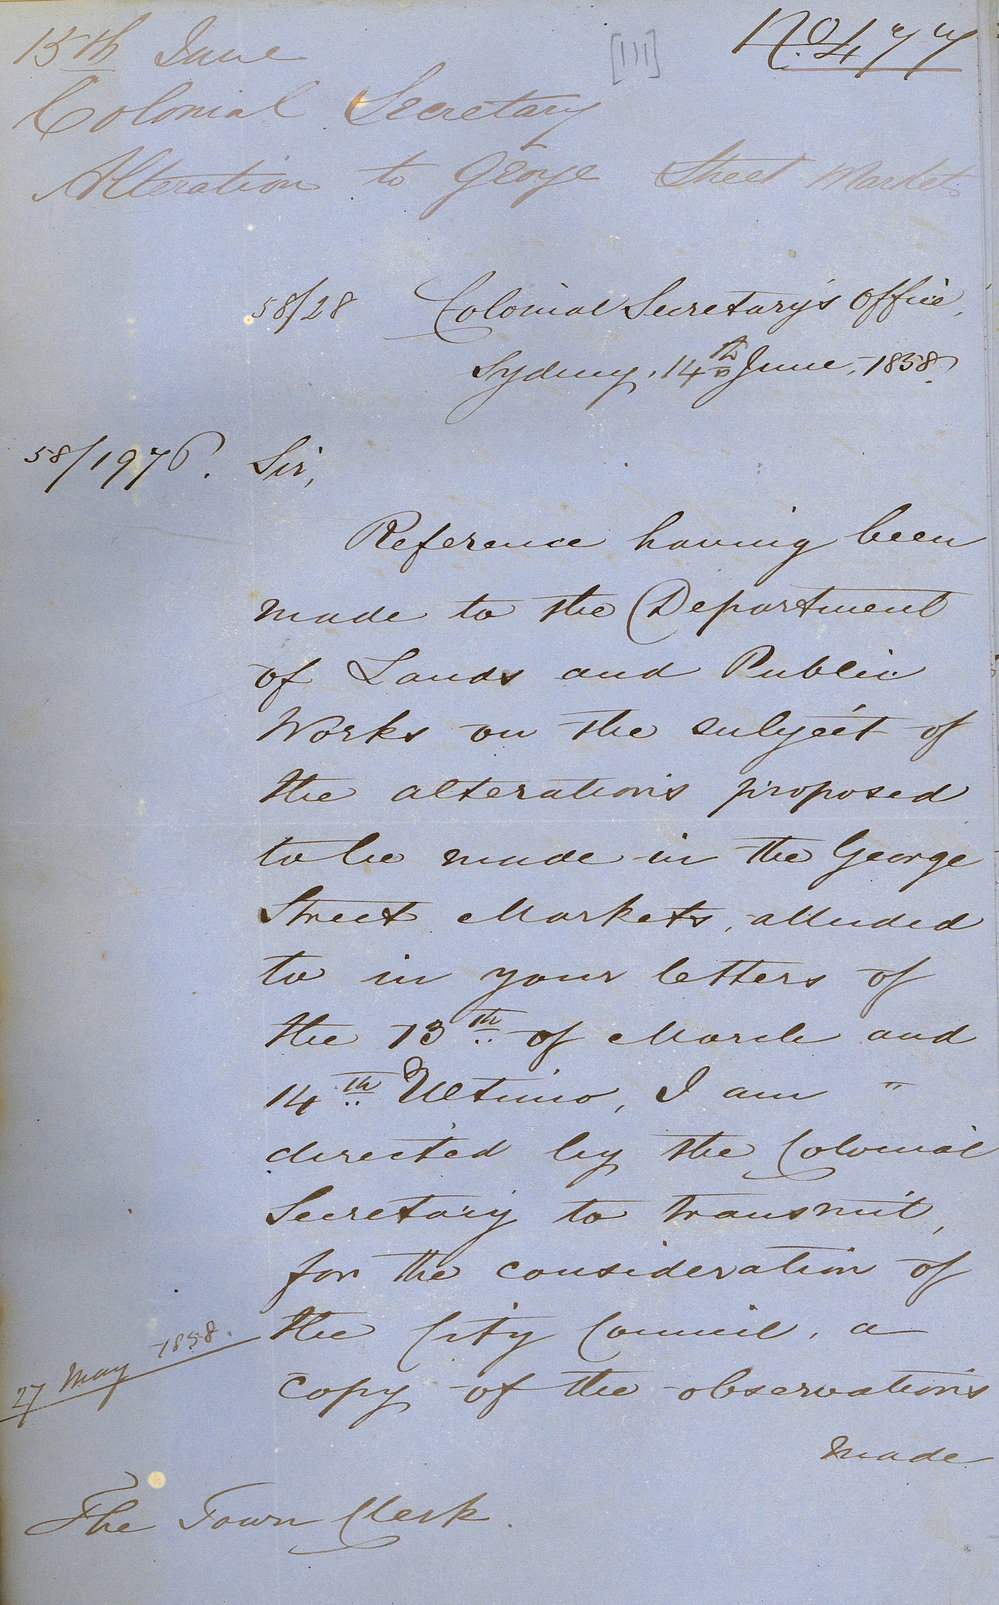 15th June
[111]
No. 477
Colonial Secretary
Alteration to George Street Markets
58/28 Colonial Secretary's Office,
Sydney, 14th June, 1858.
58/1976. Sir,
Reference having been
made to the Department
of Lands and Public
Works on the subject of
the alterations proposed
to be made in the George
Street Markets, alluded
to in your letters of
the 13th of March and
14th Ultimo, I am "
directed by the Colonial
Secretary to transmit,
for the consideration of
the City Council, a
27 May 1858.
copy of the observations
made
The Town Clerk.